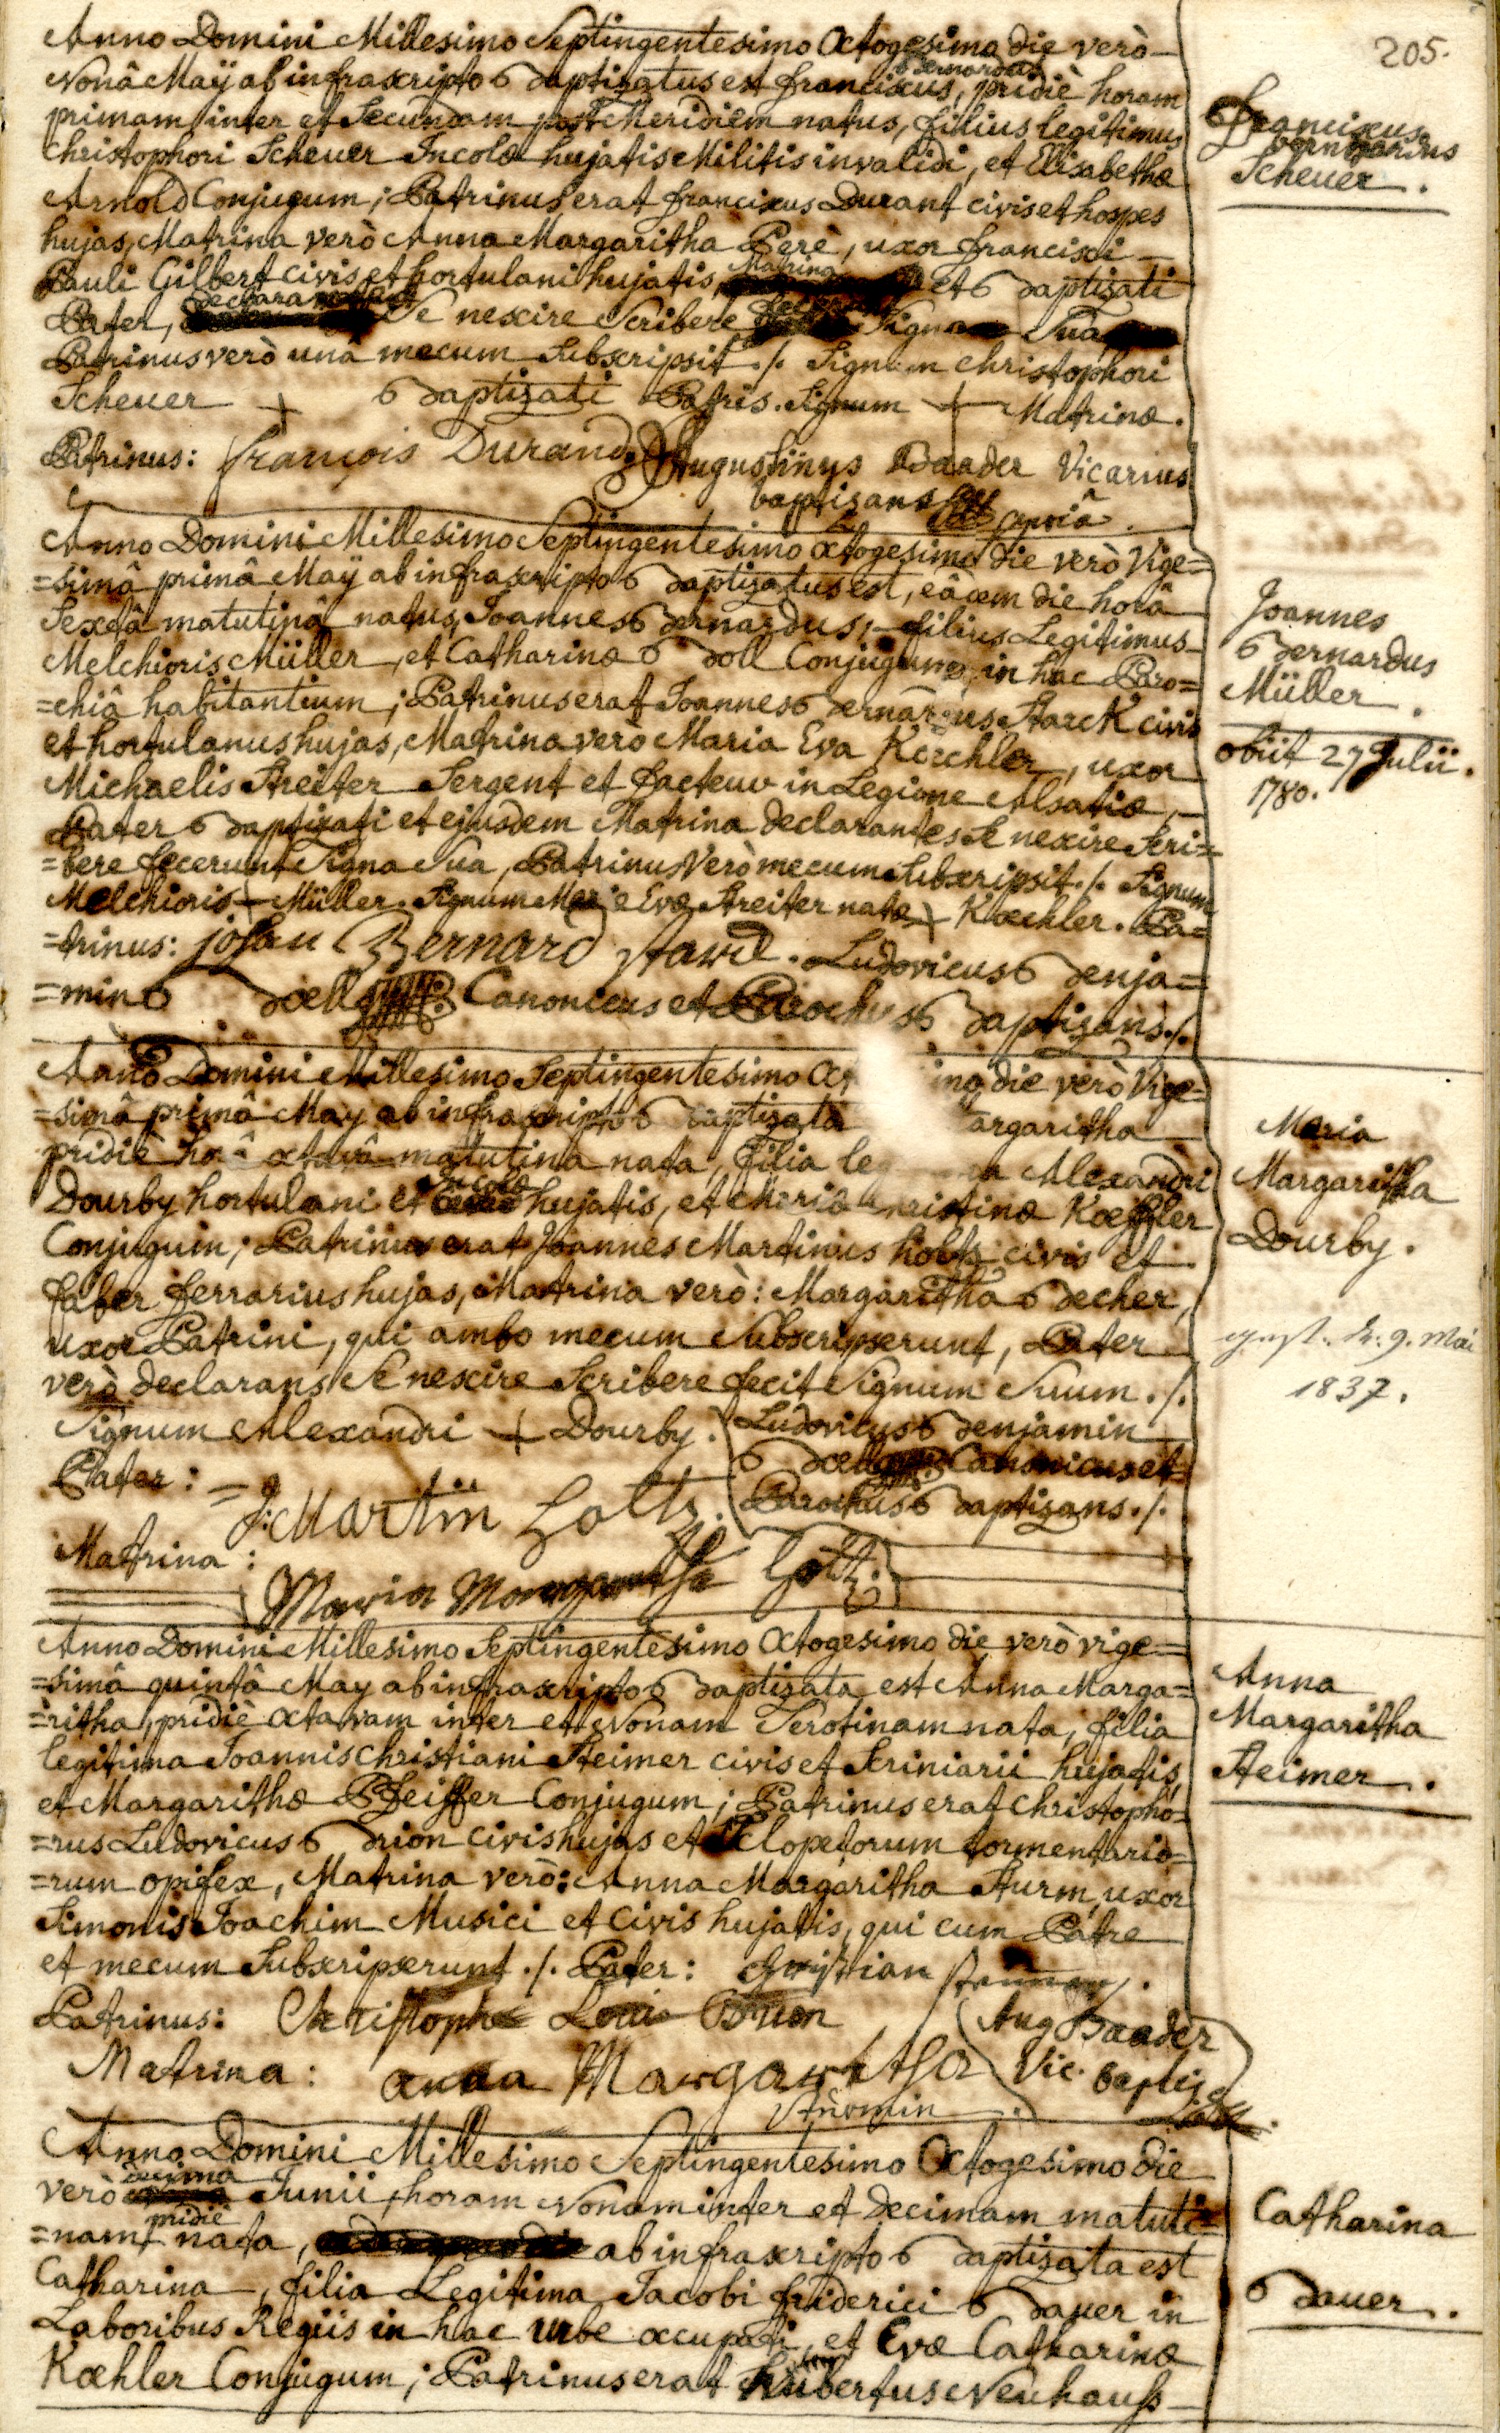 205.
Anno Domini Millesimo Septingentesimo Octogesimo die verò
Nonâ Maÿ ab infrascripto Baptizatus est Franciscus, Bernardus pridiè horam
primam inter et Secundam post Meridiem natus, filius legitimus
Christophori Scheuer Incolæ hujatis Militis invalidi, et Elisabethæ
Arnold Conjugum; Patrinus erat Franciscus Durant civis et hospes
hujas, Matrina verò Anna Margaritha Perè, uxor Francisci
Pauli Gilbert civis et hortulani hujatis, Matrina et Baptizati
Pater, Se nescire Scribere Signa Sua
Patrinus verò unâ mecum Subscripsit ./. Signum Christophori
Scheuer + Baptizati Patris. Signum + Matrinæ.
Patrinus: François Durand. Augustinus Baader Vicarius
baptizans
Franciscus
Bernhardus
Scheuer.
Anno Domini Millesimo Septingentesimo octogesimo die verò Vige=
=simâ primâ Maÿ ab infrascripto Baptizatus est, eâdem die horâ
Sextâ matutinâ natus, Joannes Bernardus, filius Legitimus
Melchioris Müller, et Catharinæ Boll Conjugum, in hac Paro=
=chiâ habitantium; Patrinus erat Joannes Bernardus Starck civis
et hortulanus hujas, Matrina verò Maria Eva Koechler, uxor
Michaelis Streiter Sergent et facteur in Legione Alsatiæ,
Pater Baptizati et ejusdem Matrina declarantes Se nescire Scri=
=bere fecerunt Signa Sua, Patrinus Verò mecum Subscripsit ./. Signum
Melchioris + Müller. Signum Mariæ Evæ Streiter natæ + Koechler. Pa=
=trinus: johan Bernard starck. Ludovicus Benja=
=min Boell Canonicus et Parochus Baptizans ./.
Joannes
Bernardus
Müller.
obiit 27 Julii.
1780.
Anno Domini Millesimo Septingentesimo Oct imo die verò Vige=
=simâ primâ May ab infrascripto Baptizata argaritha
pridiè horâ octavâ matutina nata, filia le a Alexandri
Dourby hortulani et Incolæ hujatis, et Mariæ Christinæ Koeffler
Conjugum; Patrinus erat Joannes Martinus holtz civis et
faber ferrarius hujas, Matrina verò: Margaritha Becher,
uxor Patrini, qui ambo mecum Subscripserunt, Pater
verò declarans Se nescire Scribere fecit Signum Suum ./.
Signum Alexandri + Dourby. Ludovicus Benjamin
Boell Canonicus et
Pater: = J: Martin Holtz. Parochus Baptizans ./.
Matrina: Maria Margaretha Holtz.
Maria
Margaritha
Dourby.
9. Mai
1837.
Anno Domini Millesimo Septingentesimo Octogesimo die verò vige=
=simâ quintâ May ab infrascripto Baptizata est Anna Marga=
=ritha, pridiè octavam inter et Nonam Serotinam nata, filia
legitima Joannis Christiani Steimer civis et Scriniarii hujatis,
et Margarithæ Pfeiffer Conjugum; Patrinus erat Christopho=
=rus Ludovicus Brion civis hujas et Sclopetorum tormentario=
=rum opifex, Matrina verò: Anna Margaritha Sturm, uxor
Simonis Joachim Musici et Civis hujatis, qui cum Patre
et mecum Subscripserunt ./. Pater: Christian
Patrinus: Christophe Loui Brion Aug Baader
Matrina: anna Margaretha Vic. baptiz
Stürmin
Anna
Margaritha
Steimer.
Anno Domini Millesimo Septingentesimo Octogesimo die
verò decima Junii, horam Nonam inter et decimam matuti=
=nam pridie nata, ab infrascripto Baptizata est
Catharina, filia Legitima Jacobi Friderici Bauer in
Laboribus Regiis in hac Urbe occupati, et Evæ Catharinæ
Koehler Conjugum; Patrinus erat Hubertus Neuhauß
Catharina
Bauer.